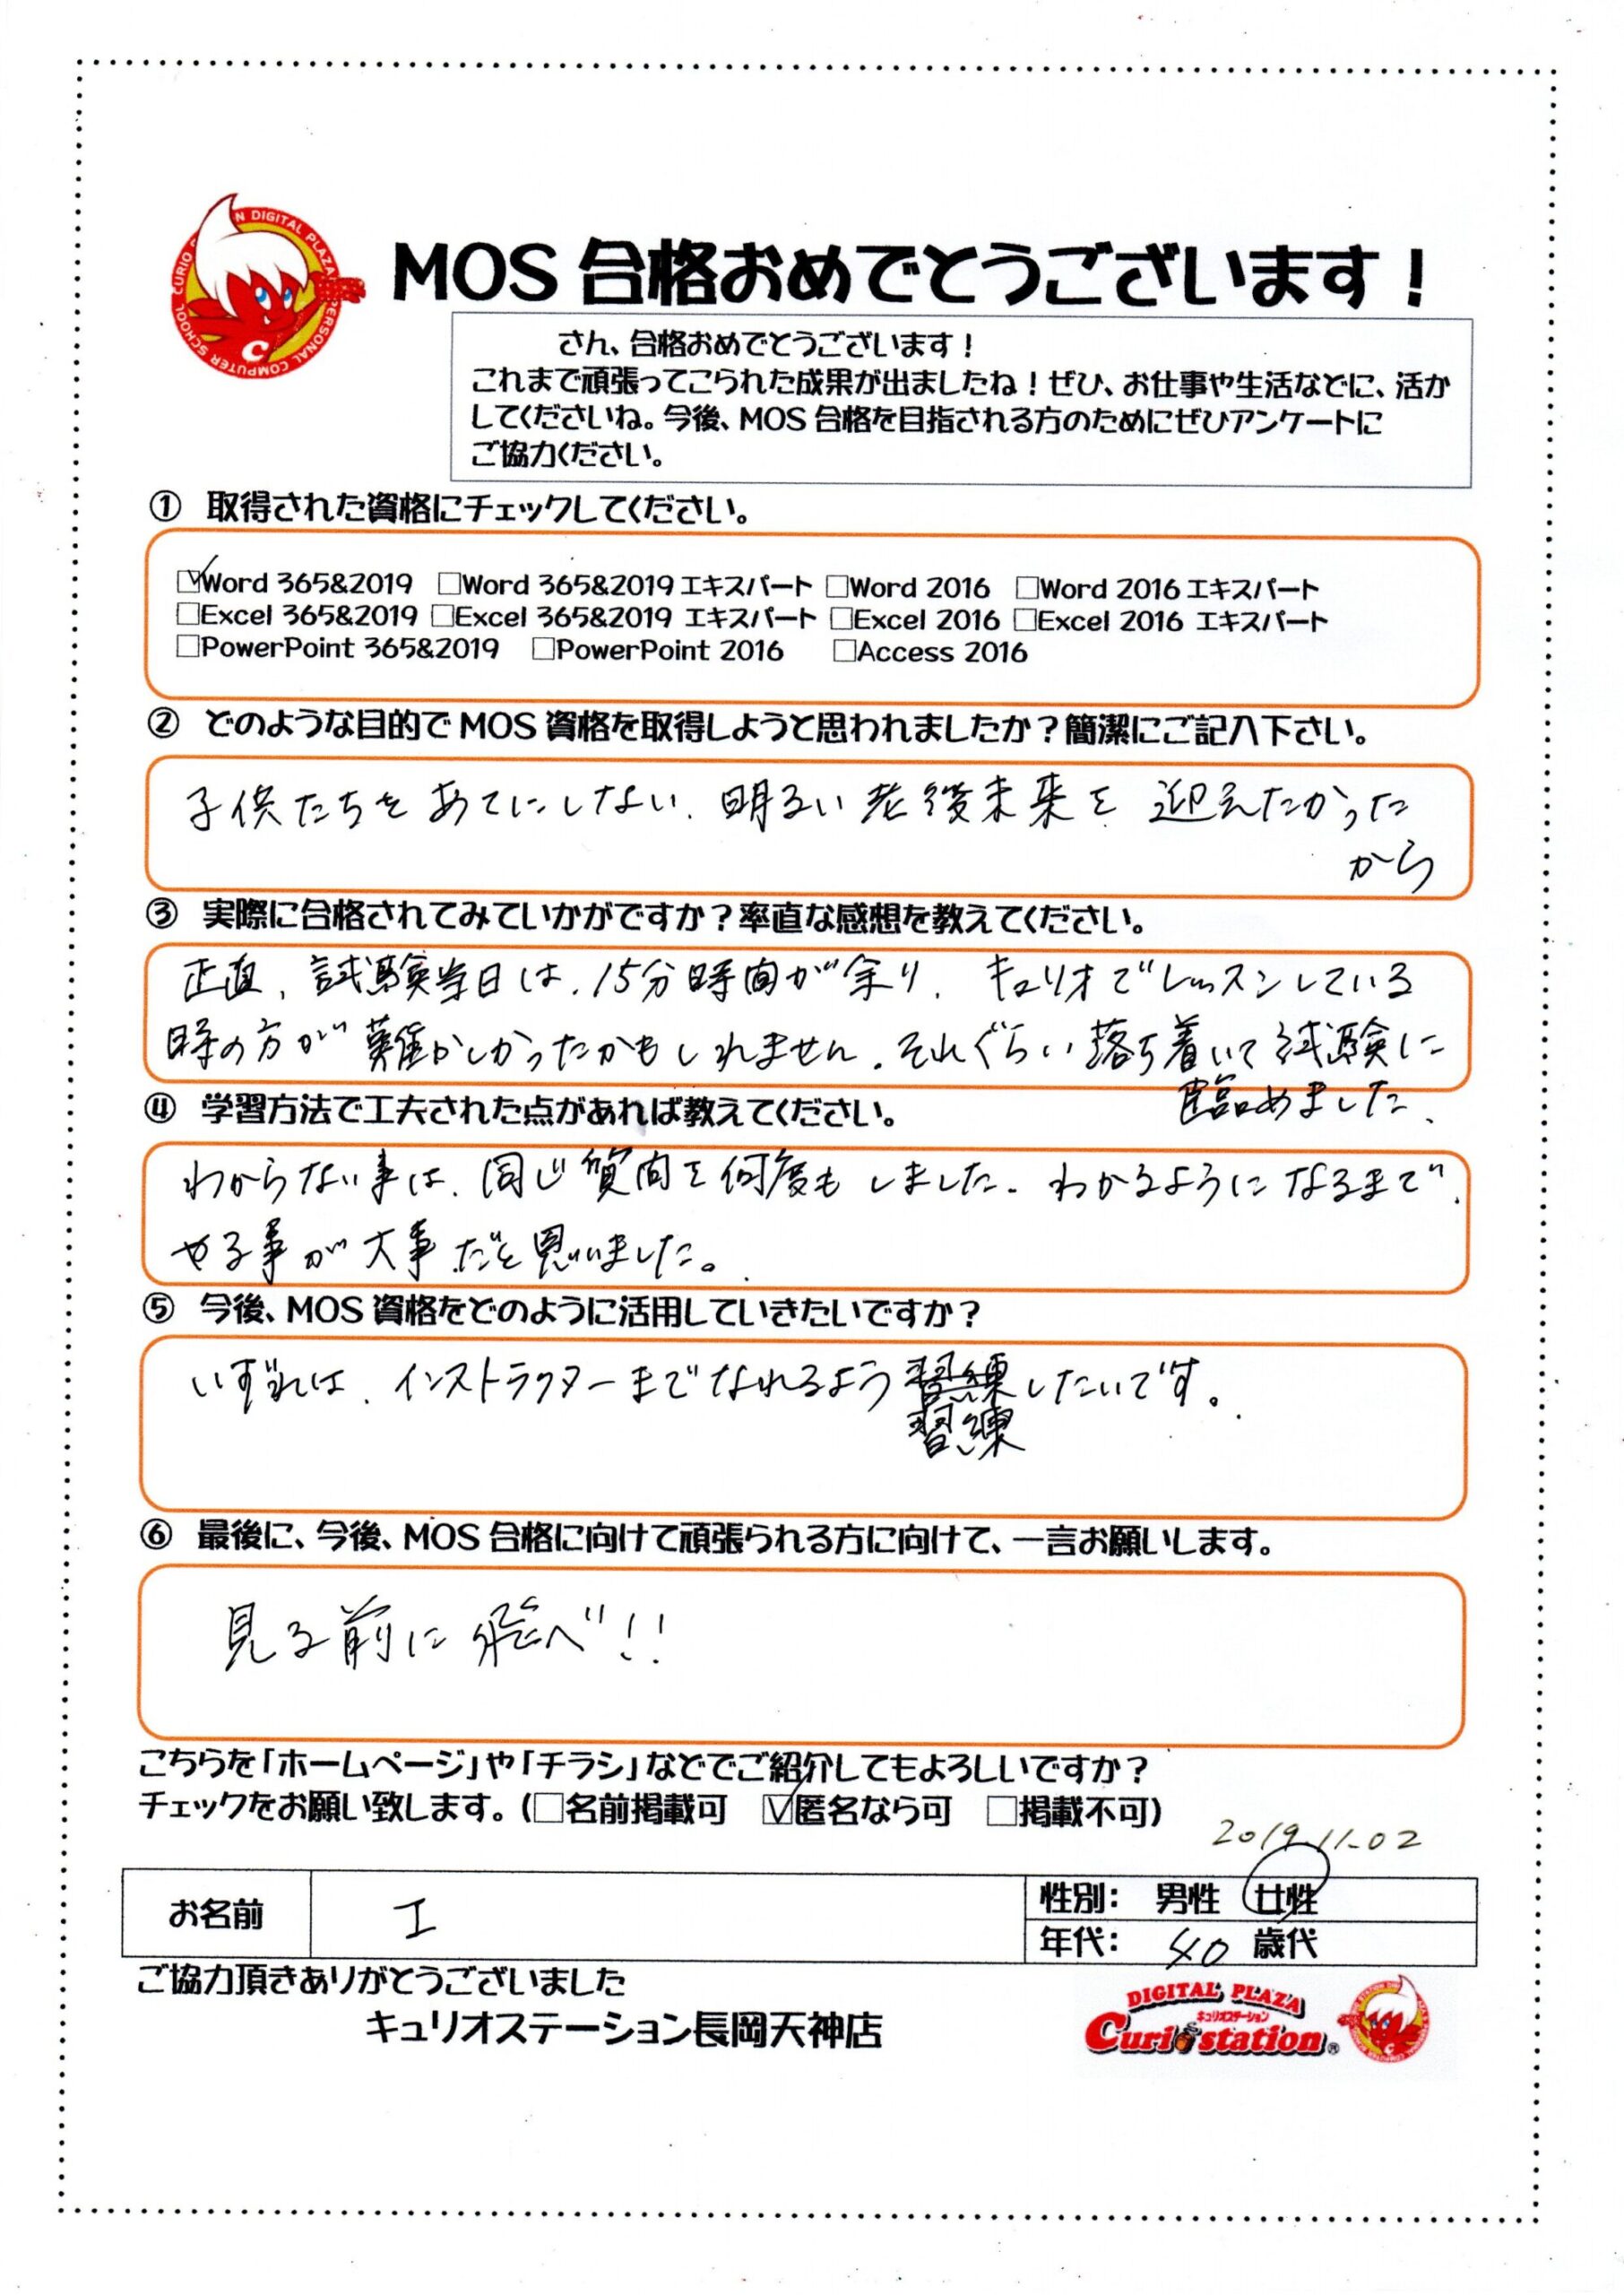 MOS 合格おめでとうございます！
さん、合格おめでとうございます！
これまで頑張ってこられた成果が出ましたね！ぜひ、お仕事や生活などに、活か
してくださいね。今後、MOS 合格を目指される方のためにぜひアンケートに
ご協力ください。
① 取得された資格にチェックしてください。
☑Word 365&2019 □Word 365&2019 エキスパート □Word 2016 □Word 2016 エキスパート
□Excel 365&2019 □Excel 365&2019 エキスパート □Excel 2016 □Excel 2016 エキスパート
□PowerPoint 365&2019 □PowerPoint 2016 □Access 2016
② どのような目的で MOS 資格を取得しようと思われましたか？簡潔にご記入下さい。
子供たちをあてにしない、明るい老後未来を迎えたかった
から
③ 実際に合格されてみていかがですか？率直な感想を教えてください。
正直、試験当日は、15分時間が余り、キュリオでレッスンしている
時の方が難かしかったかもしれません。それぐらい落ち着いて試験に
臨めました。
④ 学習方法で工夫された点があれば教えてください。
わからない事は、同じ質問を何度もしました。わかるようになるまで、
やる事が大事だと思いました。
⑤ 今後、MOS 資格をどのように活用していきたいですか？
いずれは、インストラクターまでなれるよう習練したいです。
習練
⑥ 最後に、今後、MOS 合格に向けて頑張られる方に向けて、一言お願いします。
見る前に飛べ!!
こちらを「ホームページ」や「チラシ」などでご紹介してもよろしいですか？
チェックをお願い致します。（□名前掲載可 ☑匿名なら可 □掲載不可）
2019.11.02
お名前 エ
性別： 男性 女性
年代： 40 歳代
ご協力頂きありがとうございました
キュリオステーション長岡天神店
DIGITAL PLAZA
キュリオステーション
Curio station®